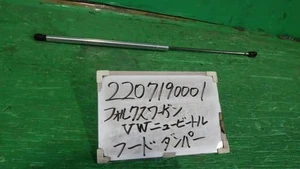 2207190001
フォルクスワーゲン
VWニュービートル
フードダンパー